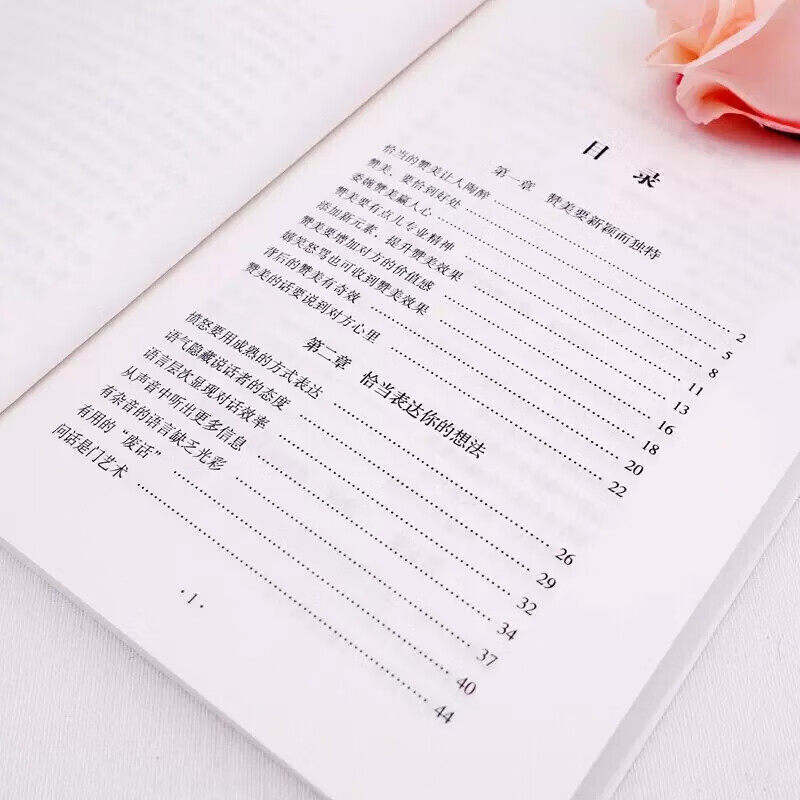 目 录
第一章 赞美要新颖而独特
恰当的赞美让人陶醉 2
赞美，要恰到好处 5
委婉赞美赢人心 8
赞美要有点儿专业精神 11
添加新元素，提升赞美效果 13
赞美要增加对方的价值感 16
嬉笑怒骂也可收到赞美效果 18
背后的赞美有奇效 20
赞美的话要说到对方心里 22
第二章 恰当表达你的想法
愤怒要用成熟的方式表达 26
语气隐藏说话者的态度 29
语言层次显现对话效率 32
从声音中听出更多信息 34
有杂音的语言缺乏光彩 37
有用的“废话” 40
问话是门艺术 44
·1·